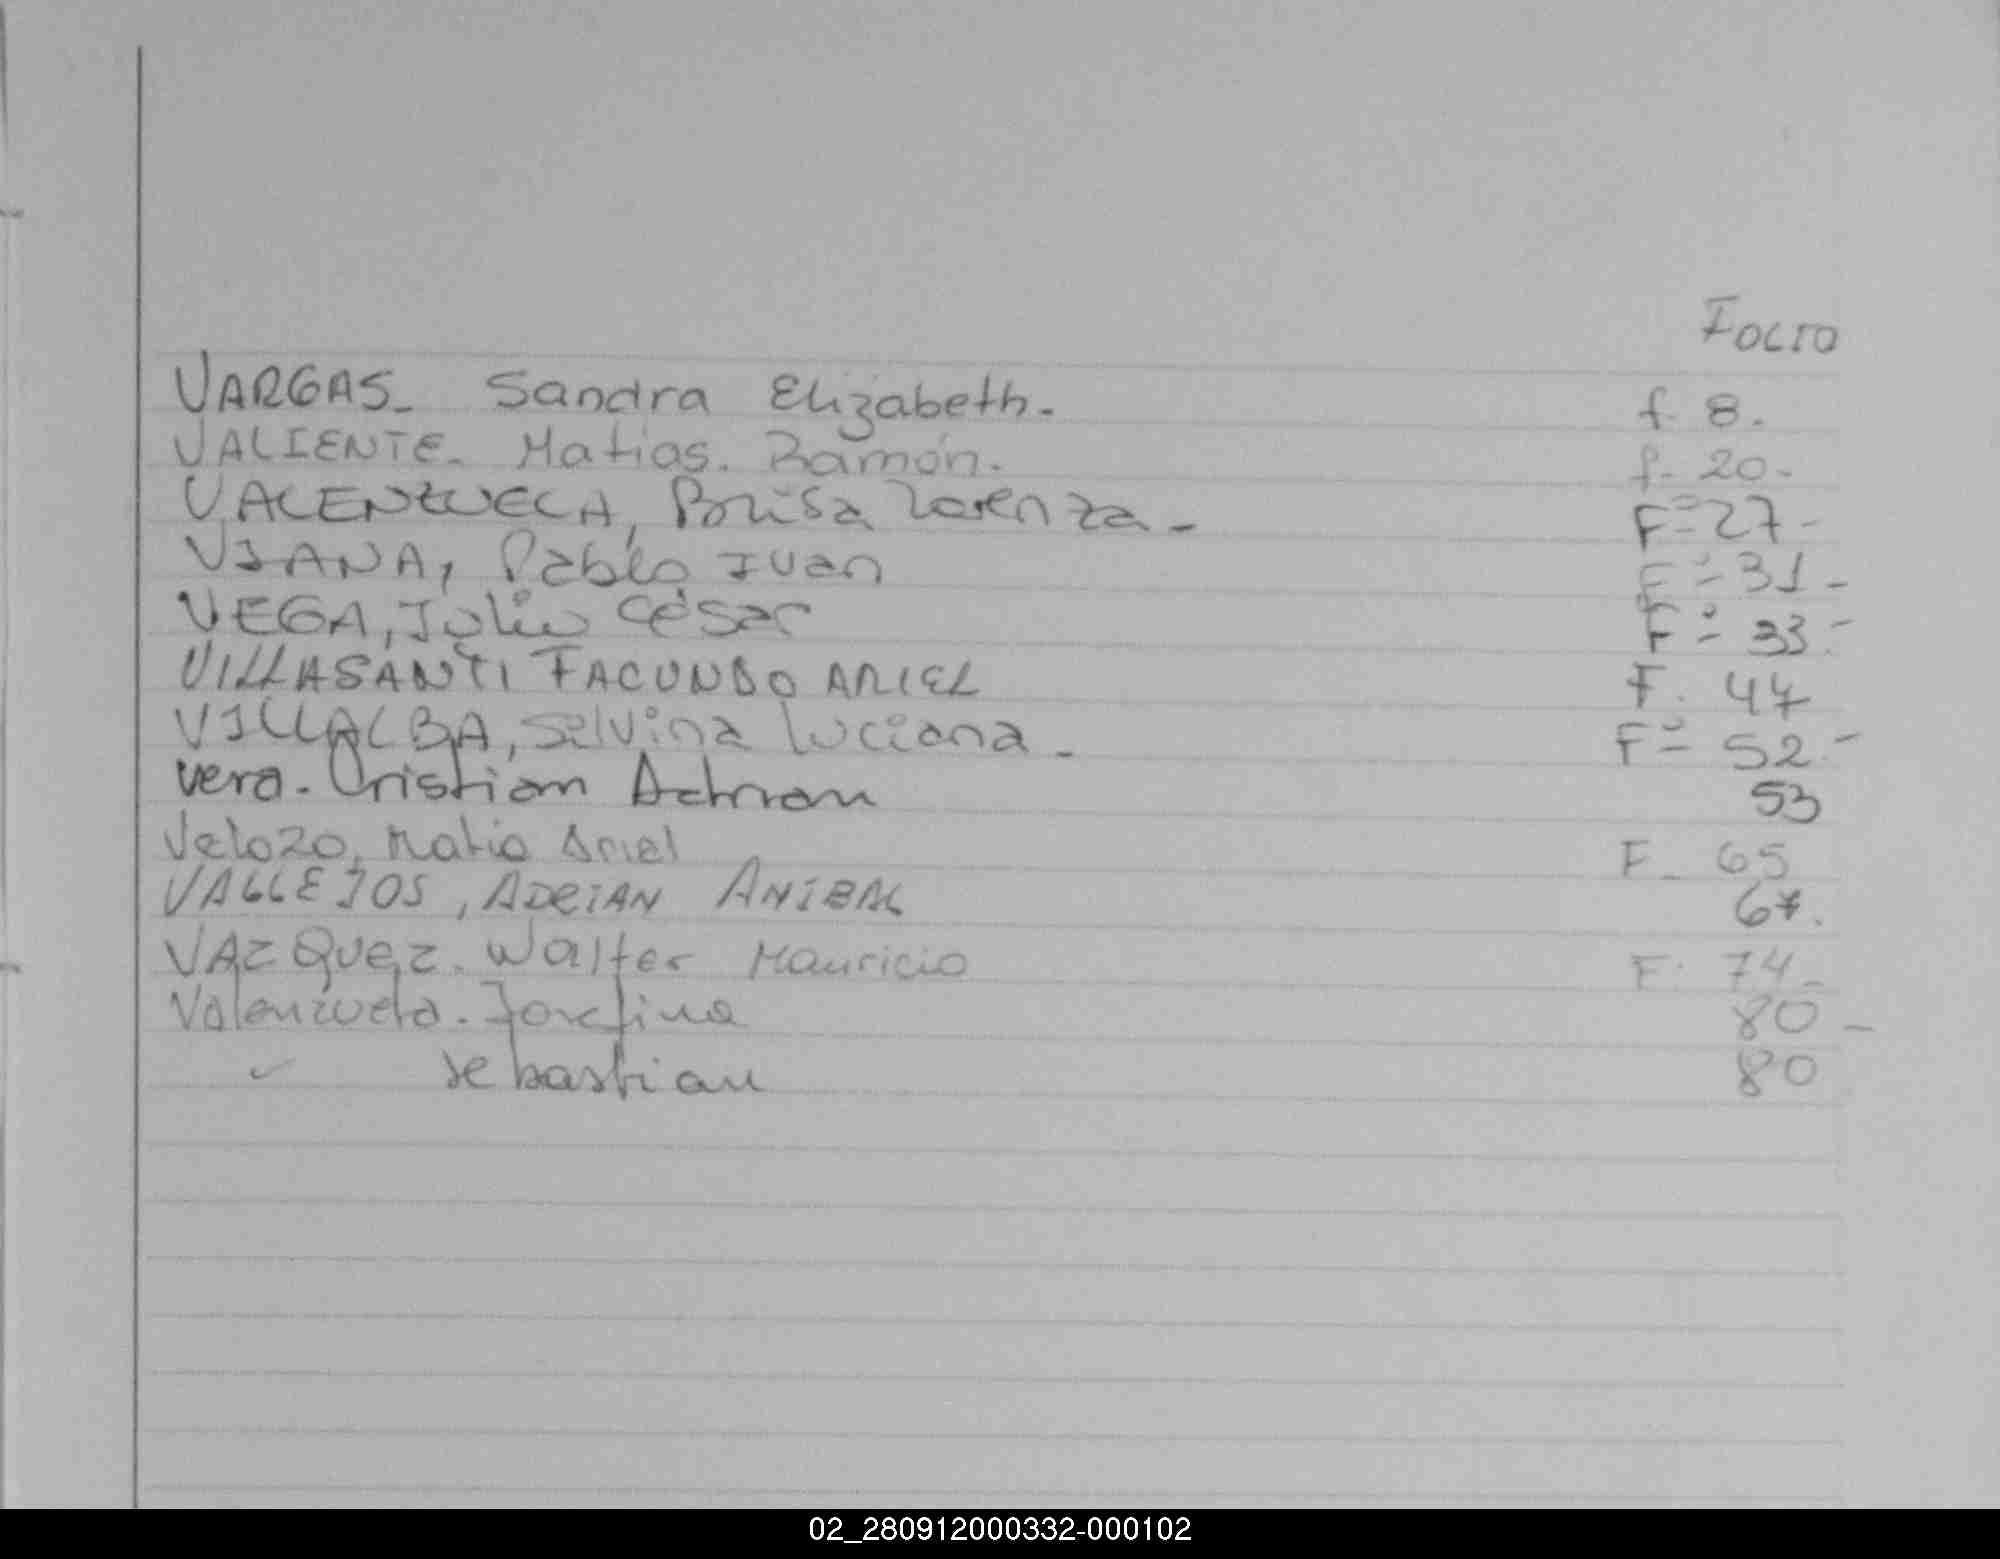 FOLIO
VARGAS- Sandra Elizabeth. f. 8.
VALIENTE- Matias. Ramón. f- 20-
VALENZUELA, Brisa Lorenza - Fº 27-
VIANA, Pablo Juan Fº 31-
VEGA, Julio César Fº 33.-
VILLASANTI FACUNDO ARIEL F. 47
VILLALBA, Silvina Luciana - Fº 52.-
Vera. Cristian Adrian 53
Velozo, Matia Ariel F- 65
VALLEJOS, ADRIAN ANIBAL 67.
VAZQUEZ. Walter Mauricio F. 74-
Valenzuela. Josefina 80-
" Sebastian 80
02_280912000332-000102